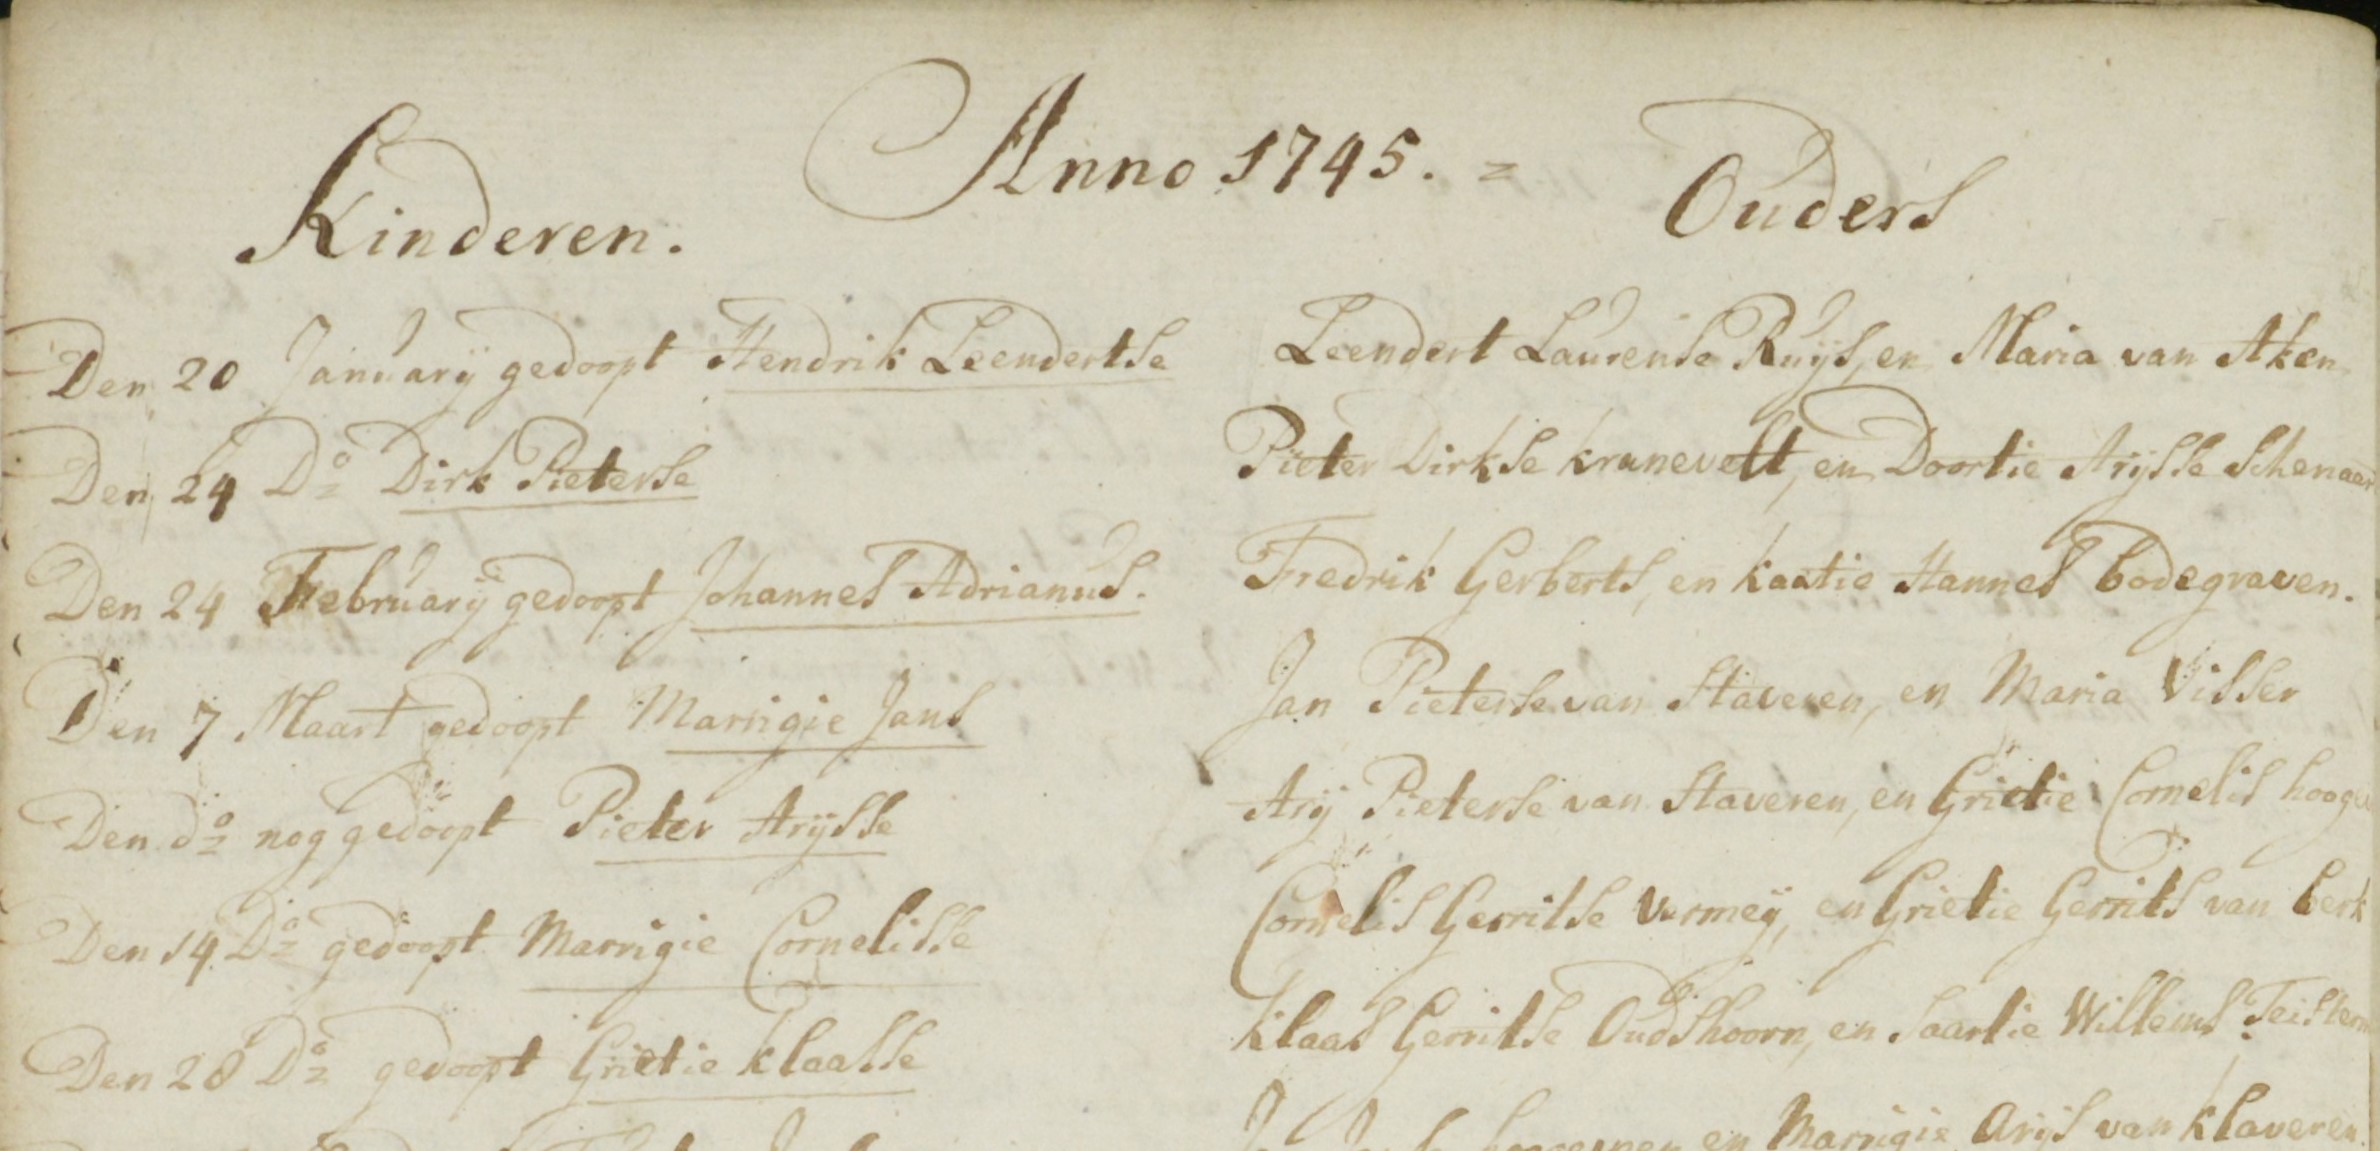 Anno 1745. =
Kinderen. Ouders
Den 20 Januarij gedoopt Hendrik Leendertse Leendert Laurense Ruijs, en Maria van Aken
Den 24 Do Dirk Pieterse Pieter Dirkse kranevelt, en Doortie Arijsse Schenaer
Den 24 Februarij gedoopt Johannes Adrianus. Fredrik Gerberts, en kaatie Hannes bodegraven.
Den 7 Maart gedoopt Marrigie Jans Jan Pieterse van Staveren, en Maria Visser
Den do nog gedoopt Pieter Arijsse Arij Pieterse van Staveren, en Grietie Cornelis
Den 14 Do gedoopt Marrigie Cornelisse Cornelis Gerritse Vermeij, en Grietie Gerrits van berk
Den 28 Do gedoopt Grietie klaasse Klaas Gerritse Oudshoorn, en Saartie Willems
en Marrigie Arijs van klaveren.